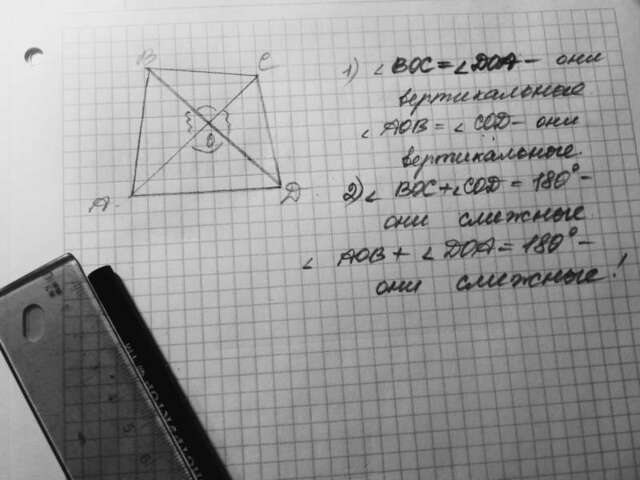 B
C
O
A
D
1) ∠BOC = ∠DOA - они
вертикальные
∠AOB = ∠COD - они
вертикальные.
2) ∠BOC + ∠COD = 180° -
они смежные
∠AOB + ∠DOA = 180° -
они смежные!
5
6